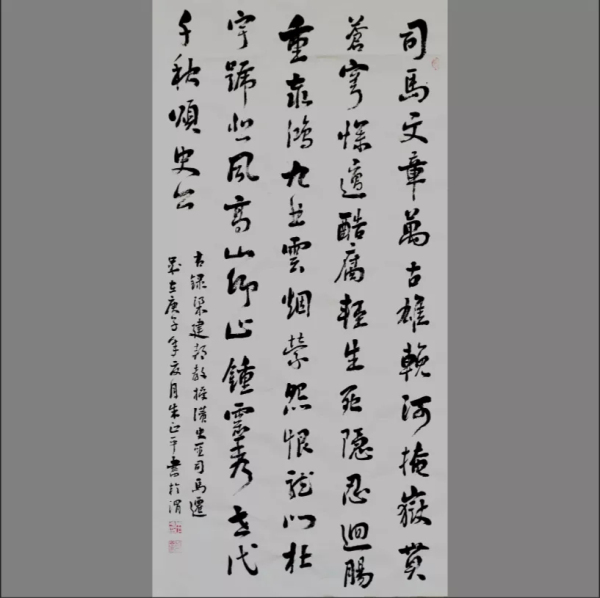 司馬文章萬古雄輓河掩嶽貫
蒼穹慘遭酷腐輕生死隱忍迴腸
重泰鴻九曲雲烟縈怨恨龍門杜
宇號悲風高山仰止鍾靈秀世代
千秋頌史公
錄梁建邦教授讚史聖司馬遷
歲在庚子年夏月朱正平書於渭